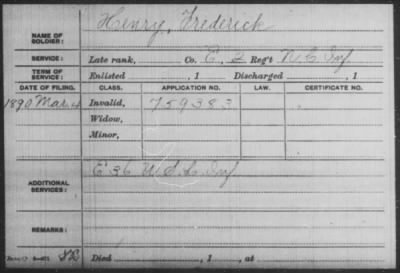 NAME OF SOLDIER: Henry, Frederick
SERVICE: Late rank, Co. E, 2 Reg't N C Inf
TERM OF SERVICE: Enlisted , 1 Discharged , 1
DATE OF FILING. CLASS. APPLICATION NO. LAW. CERTIFICATE NO.
1890 Mar. 4 Invalid, 759383
Widow,
Minor,
ADDITIONAL SERVICES: E 36 U.S.C. Inf
REMARKS:
Died , 1 , at